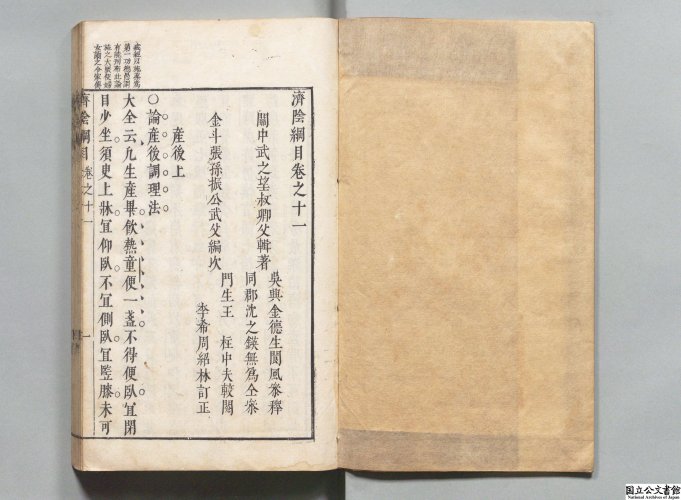 濟陰綱目卷之十一
關中武之望叔卿父輯著
吳興金德生閬風叅釋
同郡沈之鍈無爲仝叅
金斗張孫振公武父編次
門生王　柱中夫較閱
李希周紹林訂正
產後上
○論產後調理法
大全云凡生產畢飲熱童便一盞不得便臥宜閉
目少坐須臾上牀宜仰臥不宜側臥宜竪膝未可
濟陰綱目　卷之十一　一
国立公文書館
National Archives of Japan